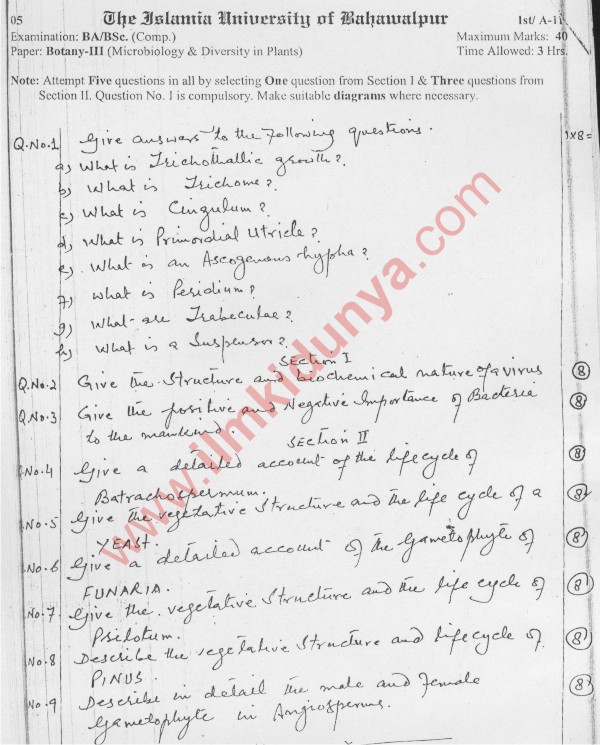 05 The Islamia University of Bahawalpur 1st/ A-11
Examination: BA/BSc. (Comp.) Maximum Marks: 40
Paper: Botany-III (Microbiology & Diversity in Plants) Time Allowed: 3 Hrs.
Note: Attempt Five questions in all by selecting One question from Section I & Three questions from
Section II. Question No. 1 is compulsory. Make suitable diagrams where necessary.
Q.No.1 Give answers to the following questions. 1x8=
a) What is Trichothallic growth?
b) What is Trichome?
c) What is Cingulum?
d) What is Primordial Utricle?
e) What is an Ascogenous hypha?
f) What is Peridium?
g) What are Trabeculae?
h) What is a Suspensor?
SECTION I
Q.No.2 Give the Structure and biochemical nature of a virus (8)
Q.No.3 Give the positive and Negative Importance of Bacteria (8)
to the mankind.
SECTION II
No.4 Give a detailed account of the life cycle of (8)
Batrachospermum.
No.5 Give the vegetative Structure and the life cycle of a (8)
YEAST.
No.6 Give a detailed account of the Gametophyte of (8)
FUNARIA.
No.7 Give the vegetative Structure and the life cycle of (8)
Psilotum.
No.8 Describe the vegetative Structure and life cycle of (8)
PINUS.
No.9 Describe in detail the male and female (8)
Gametophyte in Angiosperms.
www.ilmkidunya.com